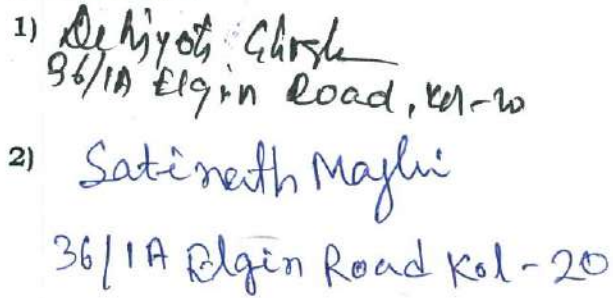 1) Debjyoti Ghosh
36/1A Elgin Road, Kol-20
2) Satinath Majhi
36/1A Elgin Road Kol-20